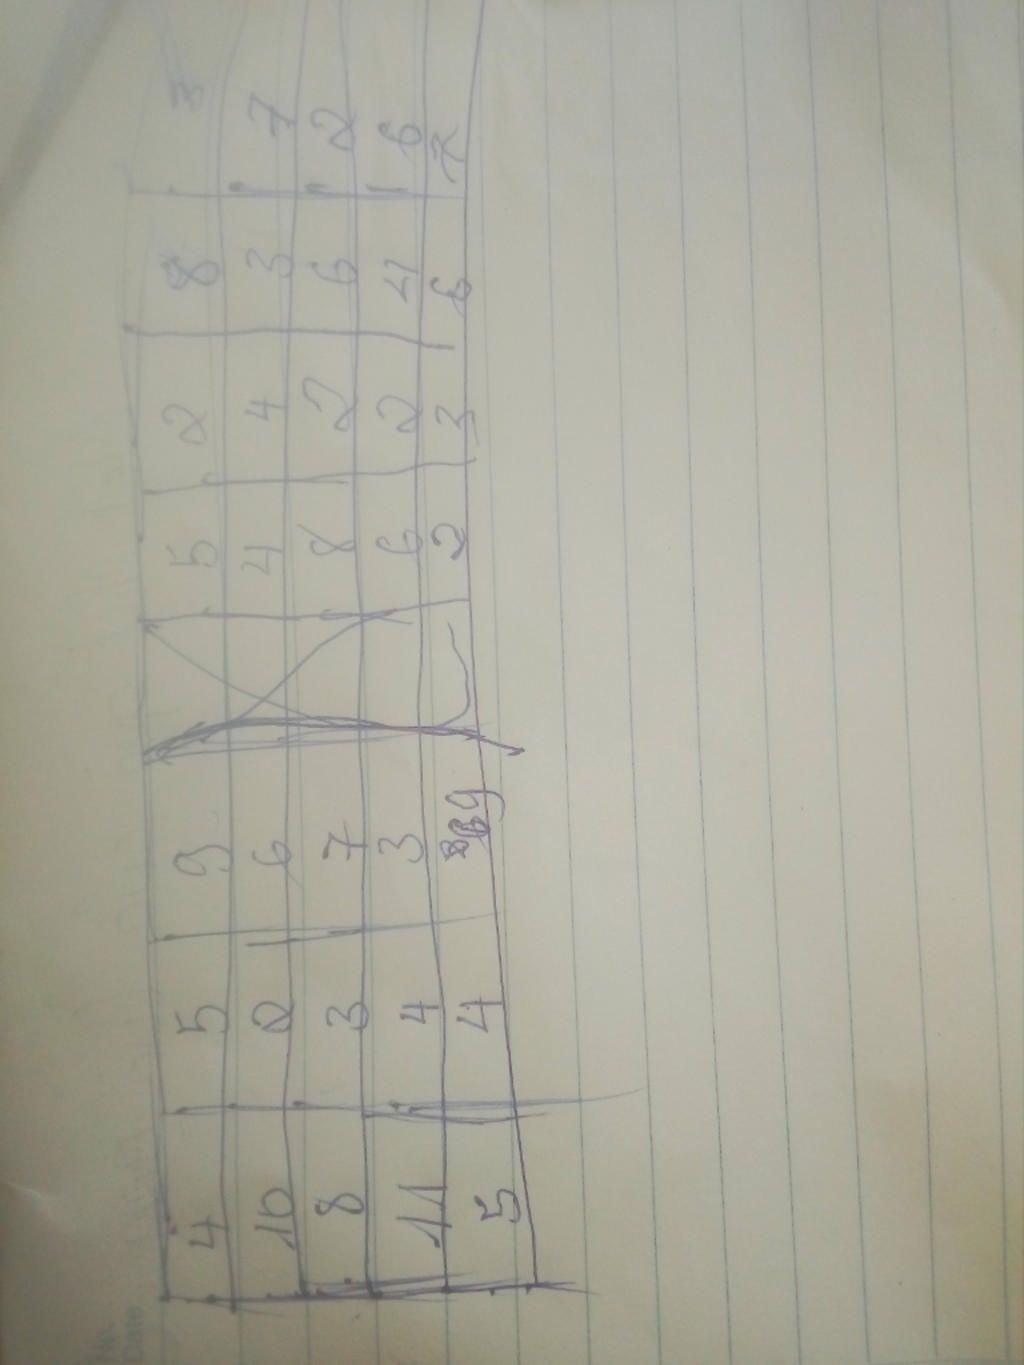 4 5 9 5 2 8 3
10 2 6 4 4 3 7
8 3 7 8 2 6 2
11 4 3 6 2 4 6
5 4 9 2 3 6
No.
Date